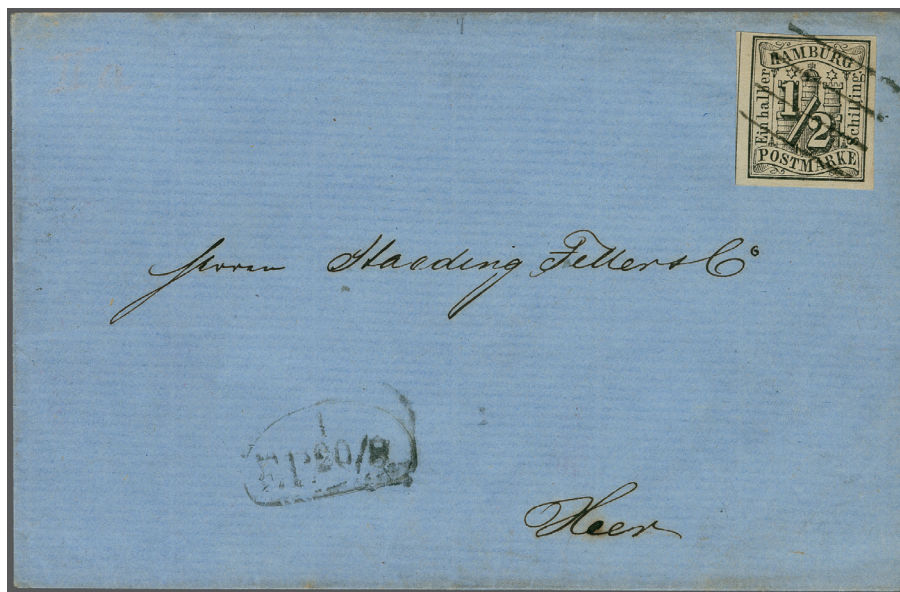 HAMBURG
Ein halber
1/2
Schilling
POSTMARKE
Herren Staeding Fellers Co
F.P. 20/8
Heer